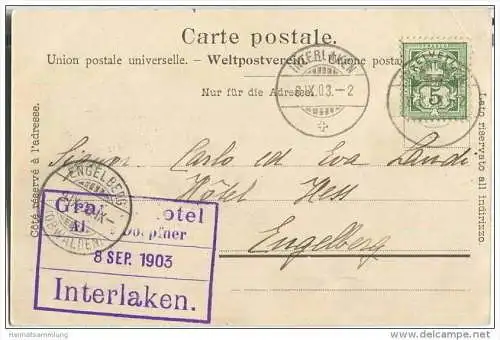 Carte postale.
Union postale universelle. – Weltpostverein. – Unione postale
Nur für die Adresse.
INTERLAKEN
8.IX.03. – 2
HELVETIA
5
Côté réservé à l'adresse.
Lato riservato all indirizzo.
Signor Carlo ed Eva Landi
Hôtel Hess
Engelberg
ENGELBERG
(OBWALDEN)
Gra otel
Doepfner
8 SEP. 1903
Interlaken.
Heimatsammlung
www.delcampe.net